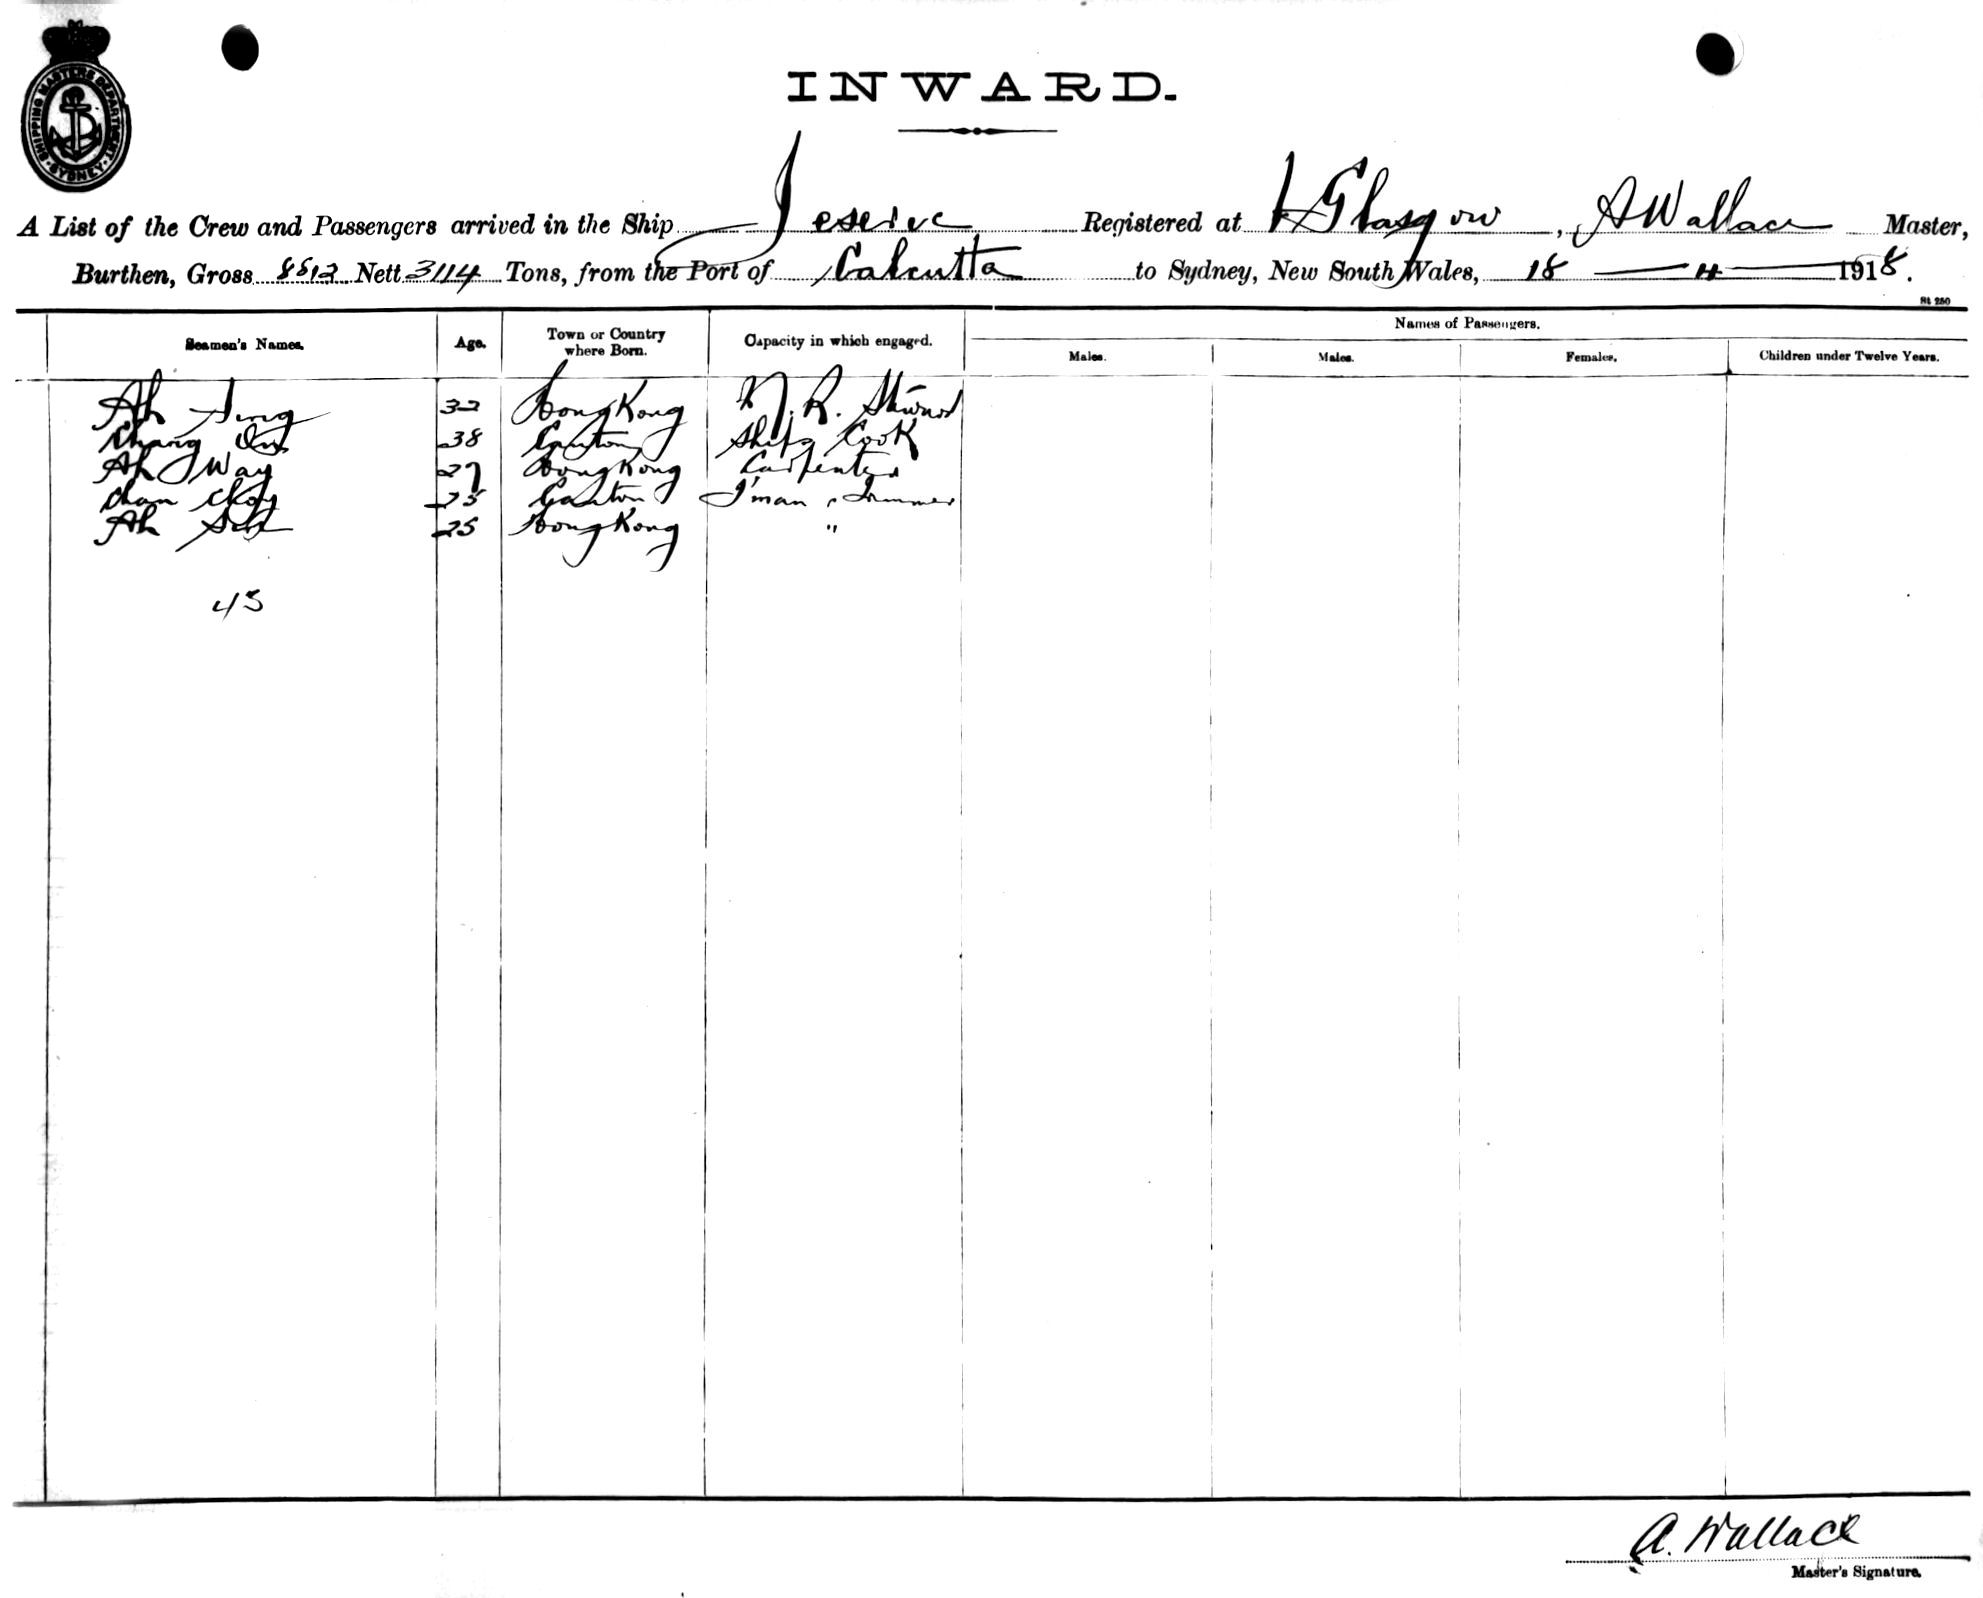 SHIPPING MASTERS DEPARTMENT SYDNEY
INWARD.
A List of the Crew and Passengers arrived in the Ship Jeseric Registered at Glasgow, A Wallace Master,
Burthen, Gross Nett 3114 Tons, from the Port of Calcutta to Sydney, New South Wales, 18 - 4 - 1918.
St 250
Seamen's Names. Age. Town or Country where Born. Capacity in which engaged. Names of Passengers.
Males. Males. Females. Children under Twelve Years.
Ah Sing 32 Hong Kong Steward
Chang On 38 Canton Ships Cook
Ah Way 27 Hong Kong Carpenter
Chan Choy 25 Canton F'man & Trimmer
Ah 25 Hong Kong "
45
A. Wallace
Master's Signature.